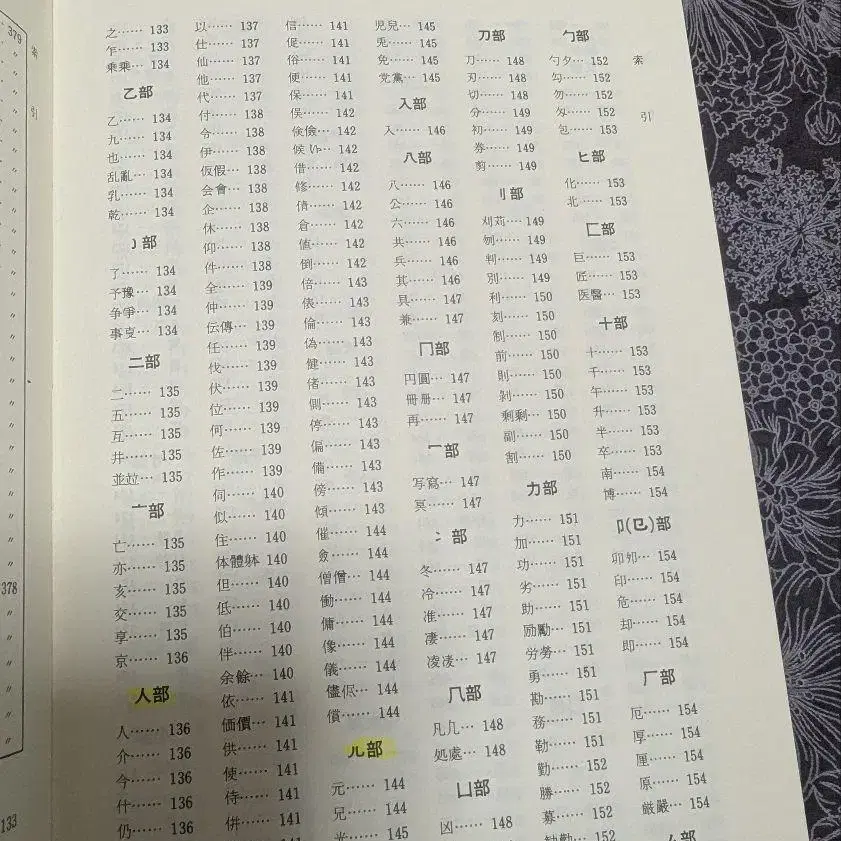 379
索
引
378
133
之…… 133
乍…… 133
乗乘… 134
乙部
乙…… 134
九…… 134
也…… 134
乱亂… 134
乳…… 134
乾…… 134
亅部
了…… 134
予豫… 134
争爭… 134
事叓… 134
二部
二…… 135
五…… 135
互…… 135
井…… 135
並竝… 135
亠部
亡…… 135
亦…… 135
亥…… 135
交…… 135
享…… 135
京…… 136
人部
人…… 136
介…… 136
今…… 136
什…… 136
仍…… 136
以…… 137
仕…… 137
仙…… 137
他…… 137
代…… 137
付…… 138
令…… 138
伊…… 138
仮假… 138
会會… 138
企…… 138
休…… 138
仰…… 138
件…… 138
全…… 139
仲…… 139
伝傳… 139
任…… 139
伐…… 139
伏…… 139
位…… 139
何…… 139
佐…… 139
作…… 139
伺…… 140
似…… 140
住…… 140
体體躰 140
但…… 140
低…… 140
伯…… 140
伴…… 140
余餘… 140
依…… 141
価價… 141
供…… 141
使…… 141
侍…… 141
併…… 141
信…… 141
促…… 141
俗…… 141
便…… 141
保…… 141
俣…… 142
倹儉… 142
候… 142
借…… 142
修…… 142
倩…… 142
倉…… 142
値…… 142
倒…… 142
倍…… 143
俵…… 143
倫…… 143
偽…… 143
健…… 143
偖…… 143
側…… 143
停…… 143
偏…… 143
備…… 143
傍…… 143
傾…… 143
催…… 144
僉…… 144
僧僧… 144
働…… 144
傭…… 144
像…… 144
儀…… 144
儘侭… 144
償…… 144
儿部
元…… 144
兄…… 144
光…… 145
児兒… 145
兎…… 145
免…… 145
党黨… 145
入部
入…… 146
八部
八…… 146
公…… 146
六…… 146
共…… 146
兵…… 146
其…… 146
具…… 147
兼…… 147
冂部
円圓… 147
冊册… 147
再…… 147
冖部
写寫… 147
冥…… 147
冫部
冬…… 147
冷…… 147
准…… 147
凄…… 147
凌凌… 147
几部
凡凢… 148
処處… 148
凵部
凶…… 148
刀部
刀…… 148
刃…… 148
切…… 148
分…… 149
初…… 149
券…… 149
剪…… 149
刂部
刈苅… 149
刎…… 149
判…… 149
別…… 149
利…… 150
刻…… 150
制…… 150
前…… 150
則…… 150
剥…… 150
剰剩… 150
副…… 150
割…… 150
力部
力…… 151
加…… 151
功…… 151
劣…… 151
助…… 151
励勵… 151
労勞… 151
勇…… 151
勘…… 151
務…… 151
勒…… 151
勤…… 152
勝…… 152
募…… 152
152
勹部
勺夕… 152
勾…… 152
勿…… 152
匁…… 152
包…… 153
匕部
化…… 153
北…… 153
匚部
巨…… 153
匠…… 153
医醫… 153
十部
十…… 153
千…… 153
午…… 153
升…… 153
半…… 153
卒…… 153
南…… 154
博…… 154
卩(㔾)部
卯夘… 154
印…… 154
危…… 154
却…… 154
即…… 154
厂部
厄…… 154
厚…… 154
厘…… 154
原…… 154
厳嚴… 154
厶部
索
引